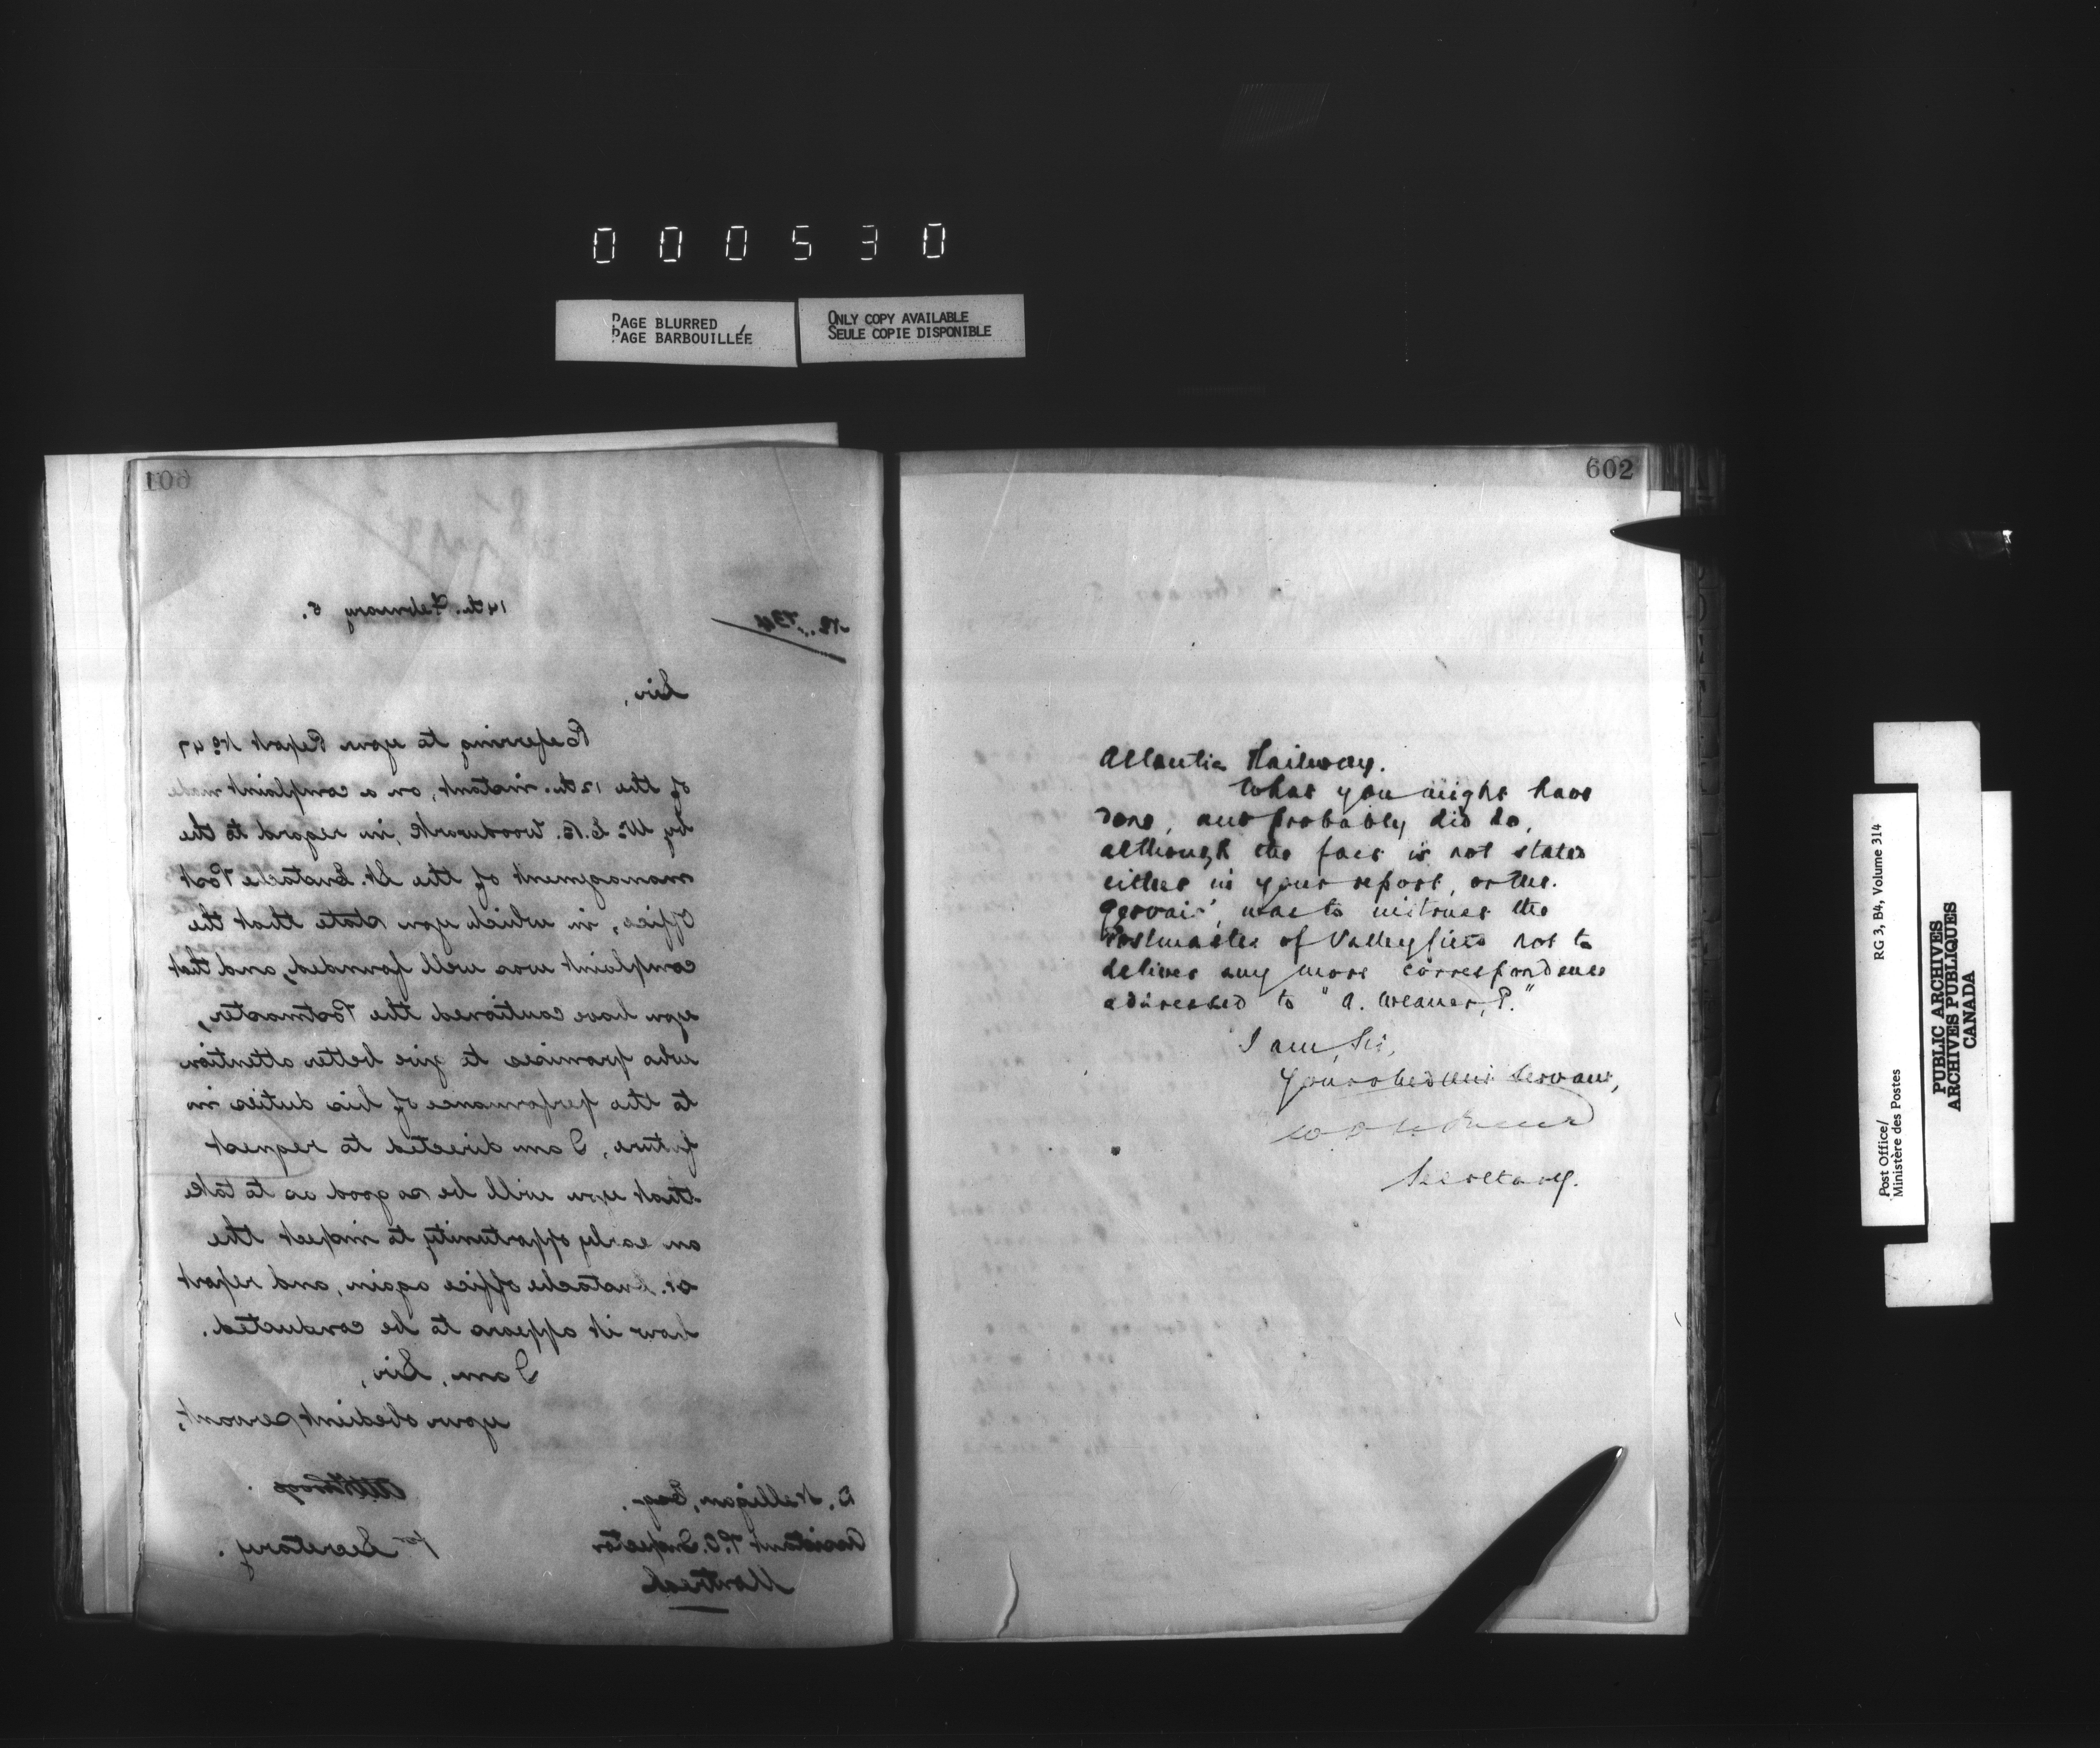 000530
PAGE BLURRED
PAGE BARBOUILLÉE
ONLY COPY AVAILABLE
SEULE COPIE DISPONIBLE
601
No. 734
14th. February 5.
Sir,
Referring to your Report No 47
of the 12th. instant, on a complaint made
by Mr E. B. Woodwark, in regard to the
management of the St. Eustache Post
Office, in which you state that the
complaint was well founded, and that
you have cautioned the Postmaster,
who promises to give better attention
to the performance of his duties in
future, I am directed to request
that you will be so good as to take
an early opportunity to inspect the
St. Eustache office again, and report
how it appears to be conducted.
I am, Sir,
your obedient servant,
for Secretary.
Esq.
Assistant P.O. Inspector
Montreal
602
Atlantic Railway.
What you might have
done, and probably did do,
although the fact is not stated
either in your report, or Mr.
Gervais', was to instruct the
Postmaster of Valleyfield not to
deliver any more correspondence
addressed to "A. Weaver, P."
I am, Sir,
Your obedient Servant,
Secretary.
Post Office/
Ministère des Postes
RG 3, B4, Volume 314
PUBLIC ARCHIVES
ARCHIVES PUBLIQUES
CANADA